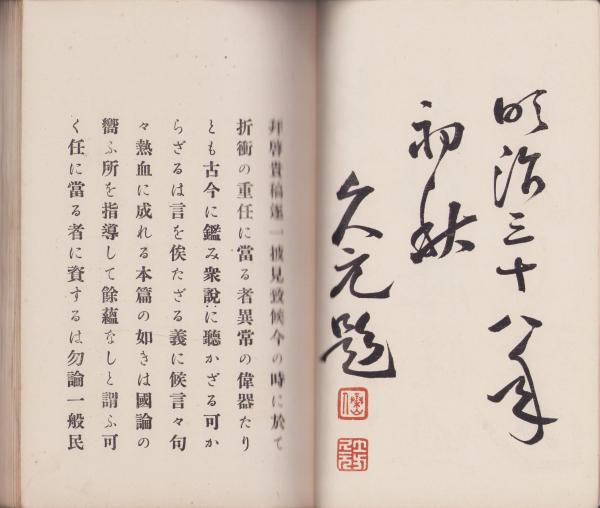 明治三十八年
初秋
久元題
拝啓貴稿逐一披見致候今の時に於て
折衝の重任に當る者異常の偉器たり
とも古今に鑑み衆說に聽かざる可か
らざるは言を俟たざる義に候言々句
々熱血に成れる本篇の如きは國論の
嚮ふ所を指導して餘蘊なしと謂ふ可
く任に當る者に資するは勿論一般民